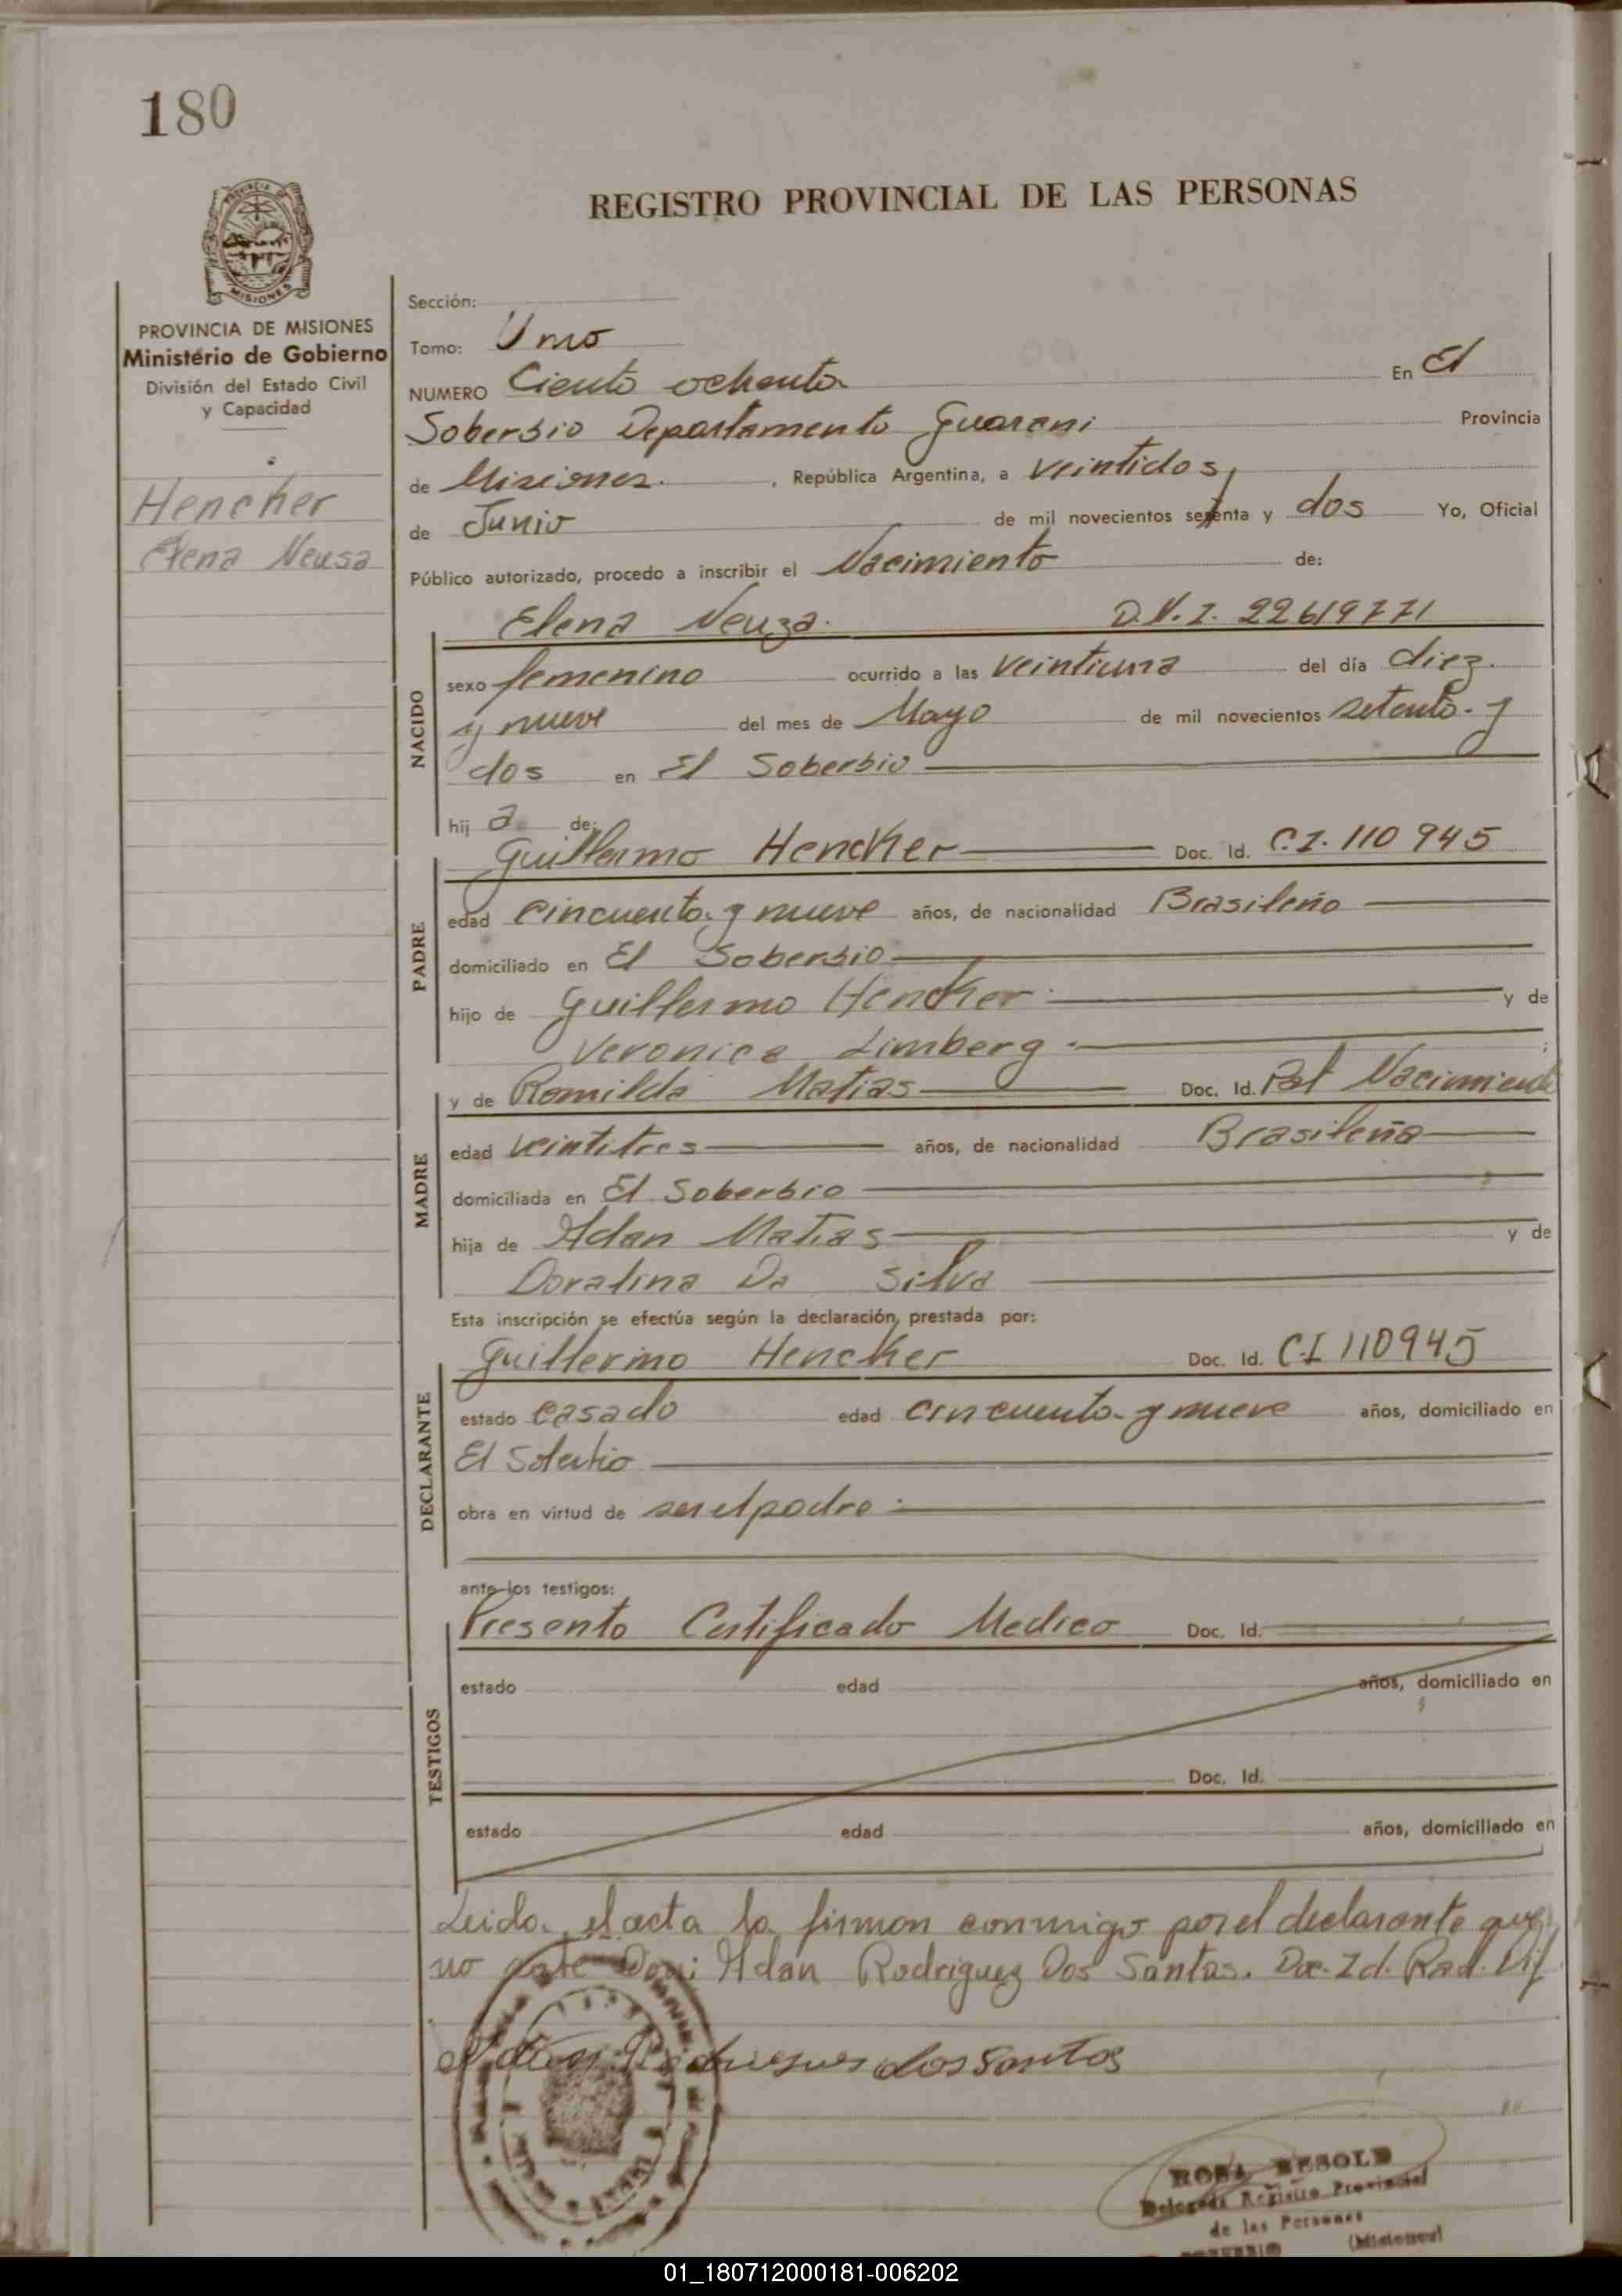 180
PROVINCIA DE
MISIONES
PROVINCIA DE MISIONES
Ministerio de Gobierno
División del Estado Civil
y Capacidad
Hencher
Elena Neusa
REGISTRO PROVINCIAL DE LAS PERSONAS
Sección:
Tomo: Uno
NUMERO Ciento ochenta En El
Soberbio Departamento Guarani Provincia
de Misiones. , República Argentina, a veintidos
de Junio de mil novecientos setenta y dos Yo, Oficial
Público autorizado, procedo a inscribir el Nacimiento de:
Elena Neuza. D.N.I. 22619771
NACIDO
sexo femenino ocurrido a las veintiuna del día diez
y nueve del mes de Mayo de mil novecientos setenta y
dos en El Soberbio
hij a de:
Guillermo Hencker Doc. Id. C.I. 110945
PADRE
edad cincuenta y nueve años, de nacionalidad Brasileño
domiciliado en El Soberbio
hijo de Guillermo Hencker y de
Veronica Limberg
y de Romilda Matias Doc. Id. Pat Nacimiento
MADRE
edad veintitres años, de nacionalidad Brasileña
domiciliada en El Soberbio
hija de Adan Matias y de
Doralina Da Silva
Esta inscripción se efectúa según la declaración, prestada por:
Guillermo Hencker Doc. Id. C.I 110945
DECLARANTE
estado casado edad cincuenta y nueve años, domiciliado en
El Soberbio
obra en virtud de ser el padre
ante los testigos:
Presento Certificado Medico Doc. Id.
TESTIGOS
estado edad años, domiciliado en
Doc. Id.
estado edad años, domiciliado en
Leida el acta la firman conmigo por el declarante que
no Don: Adan Rodriguez Dos Santos. Doc. Id. Rad. Dif
dos Santos
ROSA BESOLD
Delegada Registro Provincial
de las Personas
(Misiones)
01_180712000181-006202